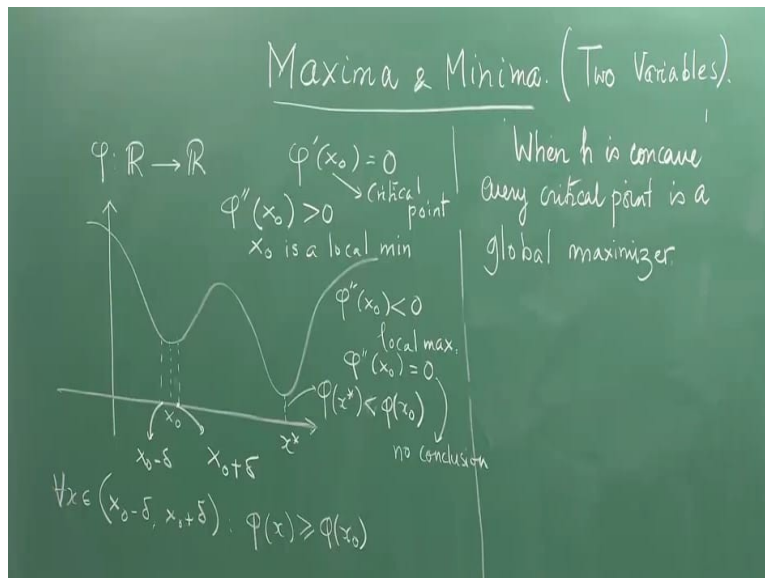 Maxima & Minima. (Two Variables).
φ: ℝ → ℝ
φ'(x₀) = 0
critical
point
φ''(x₀) > 0
x₀ is a local min
φ''(x₀) < 0
local max.
φ''(x₀) = 0
φ(x*) < φ(x₀)
no conclusion
x₀
x*
x₀-δ
x₀+δ
∀x ∈ (x₀-δ, x₀+δ) : φ(x) ⩾ φ(x₀)
When h is concave
every critical point is a
global maximizer.